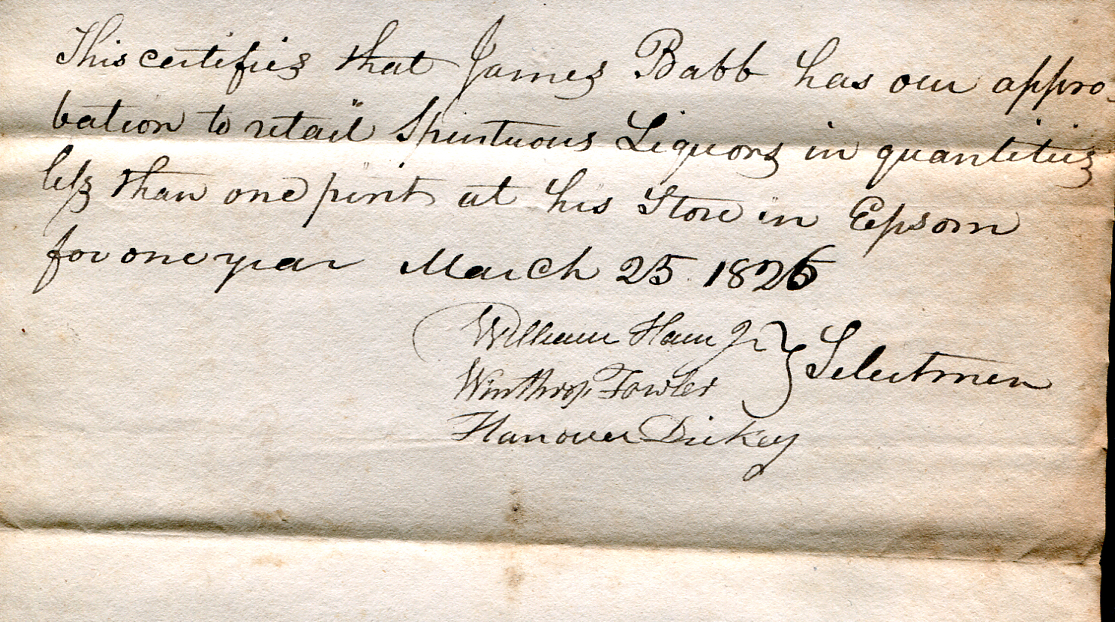 This certifies that James Babb has our appro-
bation to retail Spirituous Liquors in quantities
less than one pint at his Store in Epsom
for one year March 25 1826
William Ham Jr
Winthrop Fowler } Selectmen
Hanover Dickey